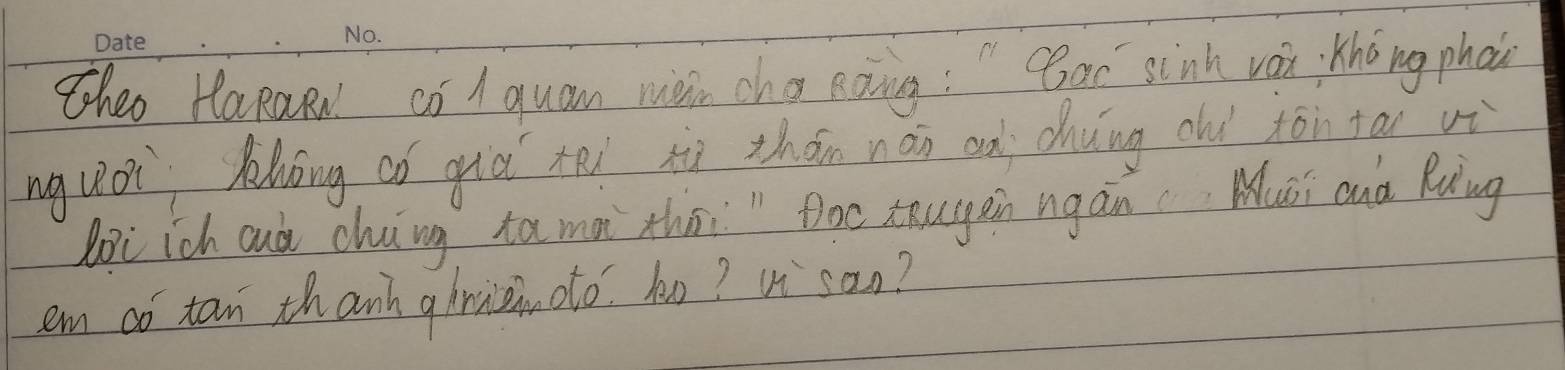 Date . . No.
Theo HaRaRi có 1 quan niệm cho rằng: "Các sinh vật không phải
người, không có giá trị tự thân nào cả, chúng chỉ tồn tại vì
lợi ích của chúng ta mà thôi." Đọc truyện ngắn Muối của Rừng
em có tán thành q/niệm đó ko? vì sao?